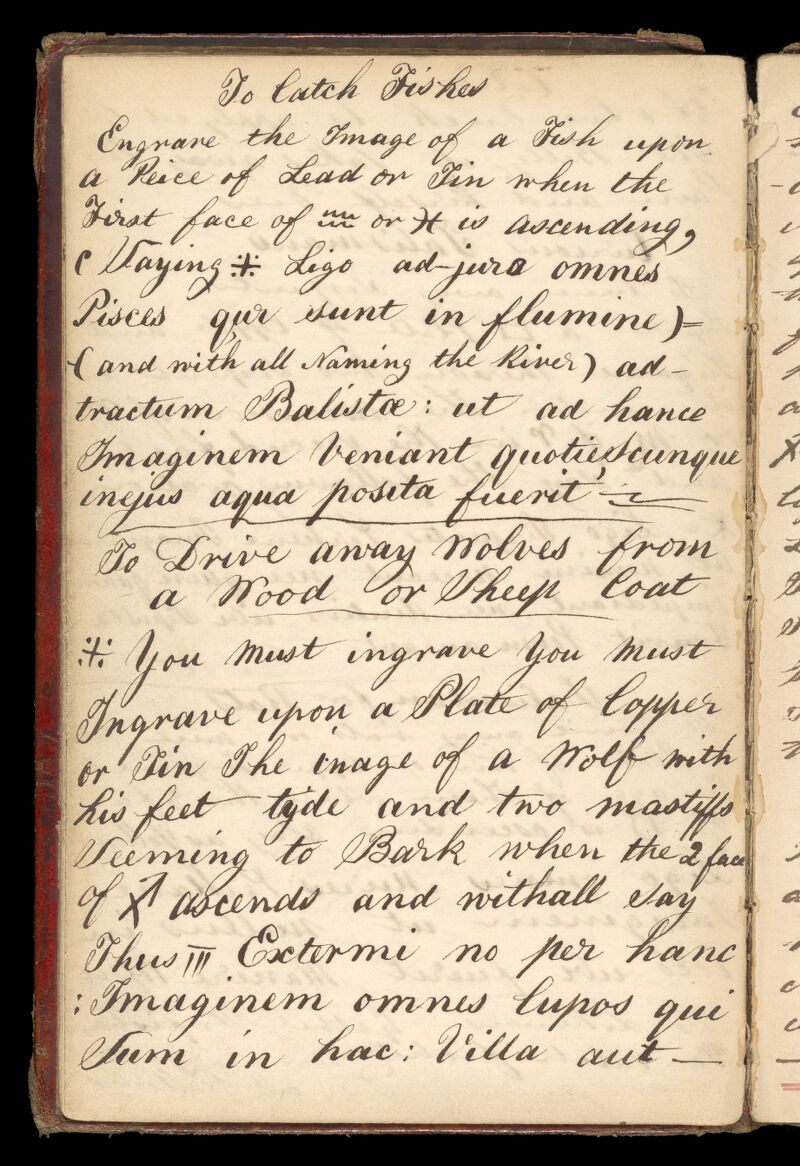 To Catch Fishes
Engrave the Image of a Fish upon
a Peice of Lead or Tin when the
First face of ♒ or ♓ is ascending,
( Saying ⁜ Ligo ad-juro omnes
Pisces qui sunt in flumine)=
(and with all Naming the River) ad-
tractum Balistæ: ut ad hance
Imaginem Veniant quotiesScunque
inejus aqua posita fuerit
To Drive away Wolves from
a Wood or Sheep Coat
⁜ You must ingrave You must
Ingrave upon a Plate of Copper
or Tin The inage of a Wolf with
his feet tyde and two mastiffs
Seeming to Bark when the 2 face
of ♐ ascends and withall say
Thus III Extermi no per hanc
: Imaginem omnes lupos qui
Sum in hac: Villa aut —